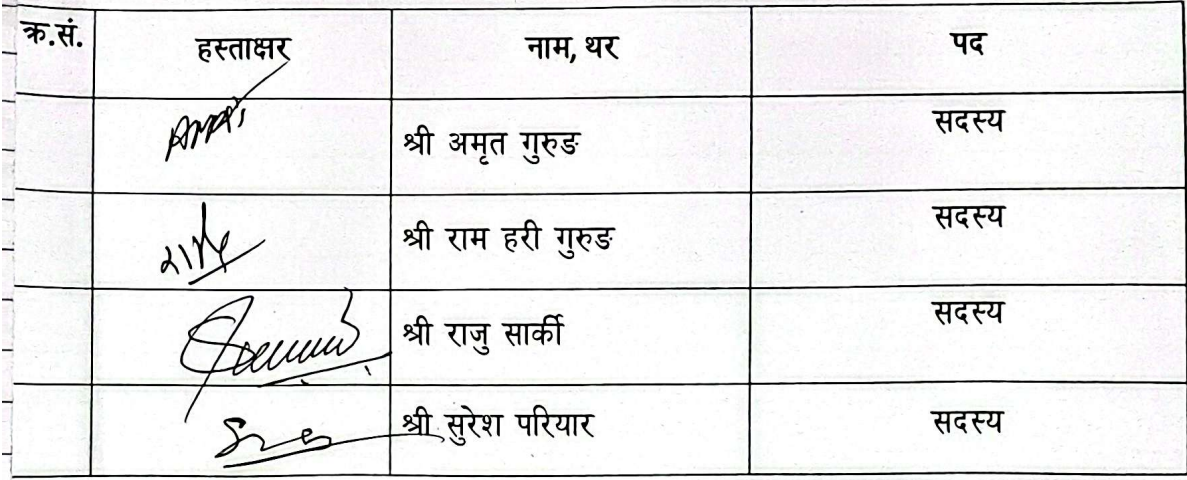 क्र.सं. हस्ताक्षर नाम, थर पद
श्री अमृत गुरुङ सदस्य
श्री राम हरी गुरुङ सदस्य
श्री राजु सार्की सदस्य
श्री सुरेश परियार सदस्य